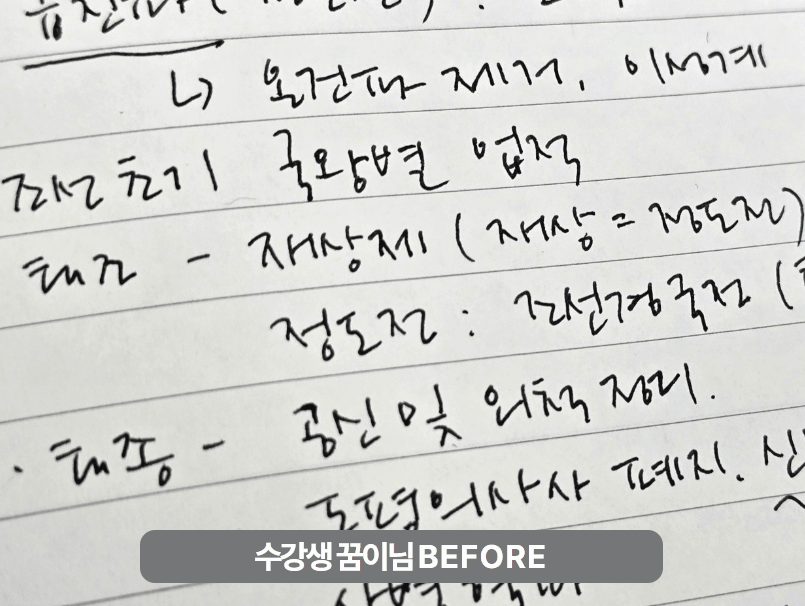 ↳ 온건파 제거, 이성계
조선 초기 국왕별 업적
태조 - 재상제 (재상 = 정도전)
정도전 : 조선경국전 (
· 태종 - 공신 및 외척 정리.
도평의사사 폐지.
수강생 꿈이님 BEFORE